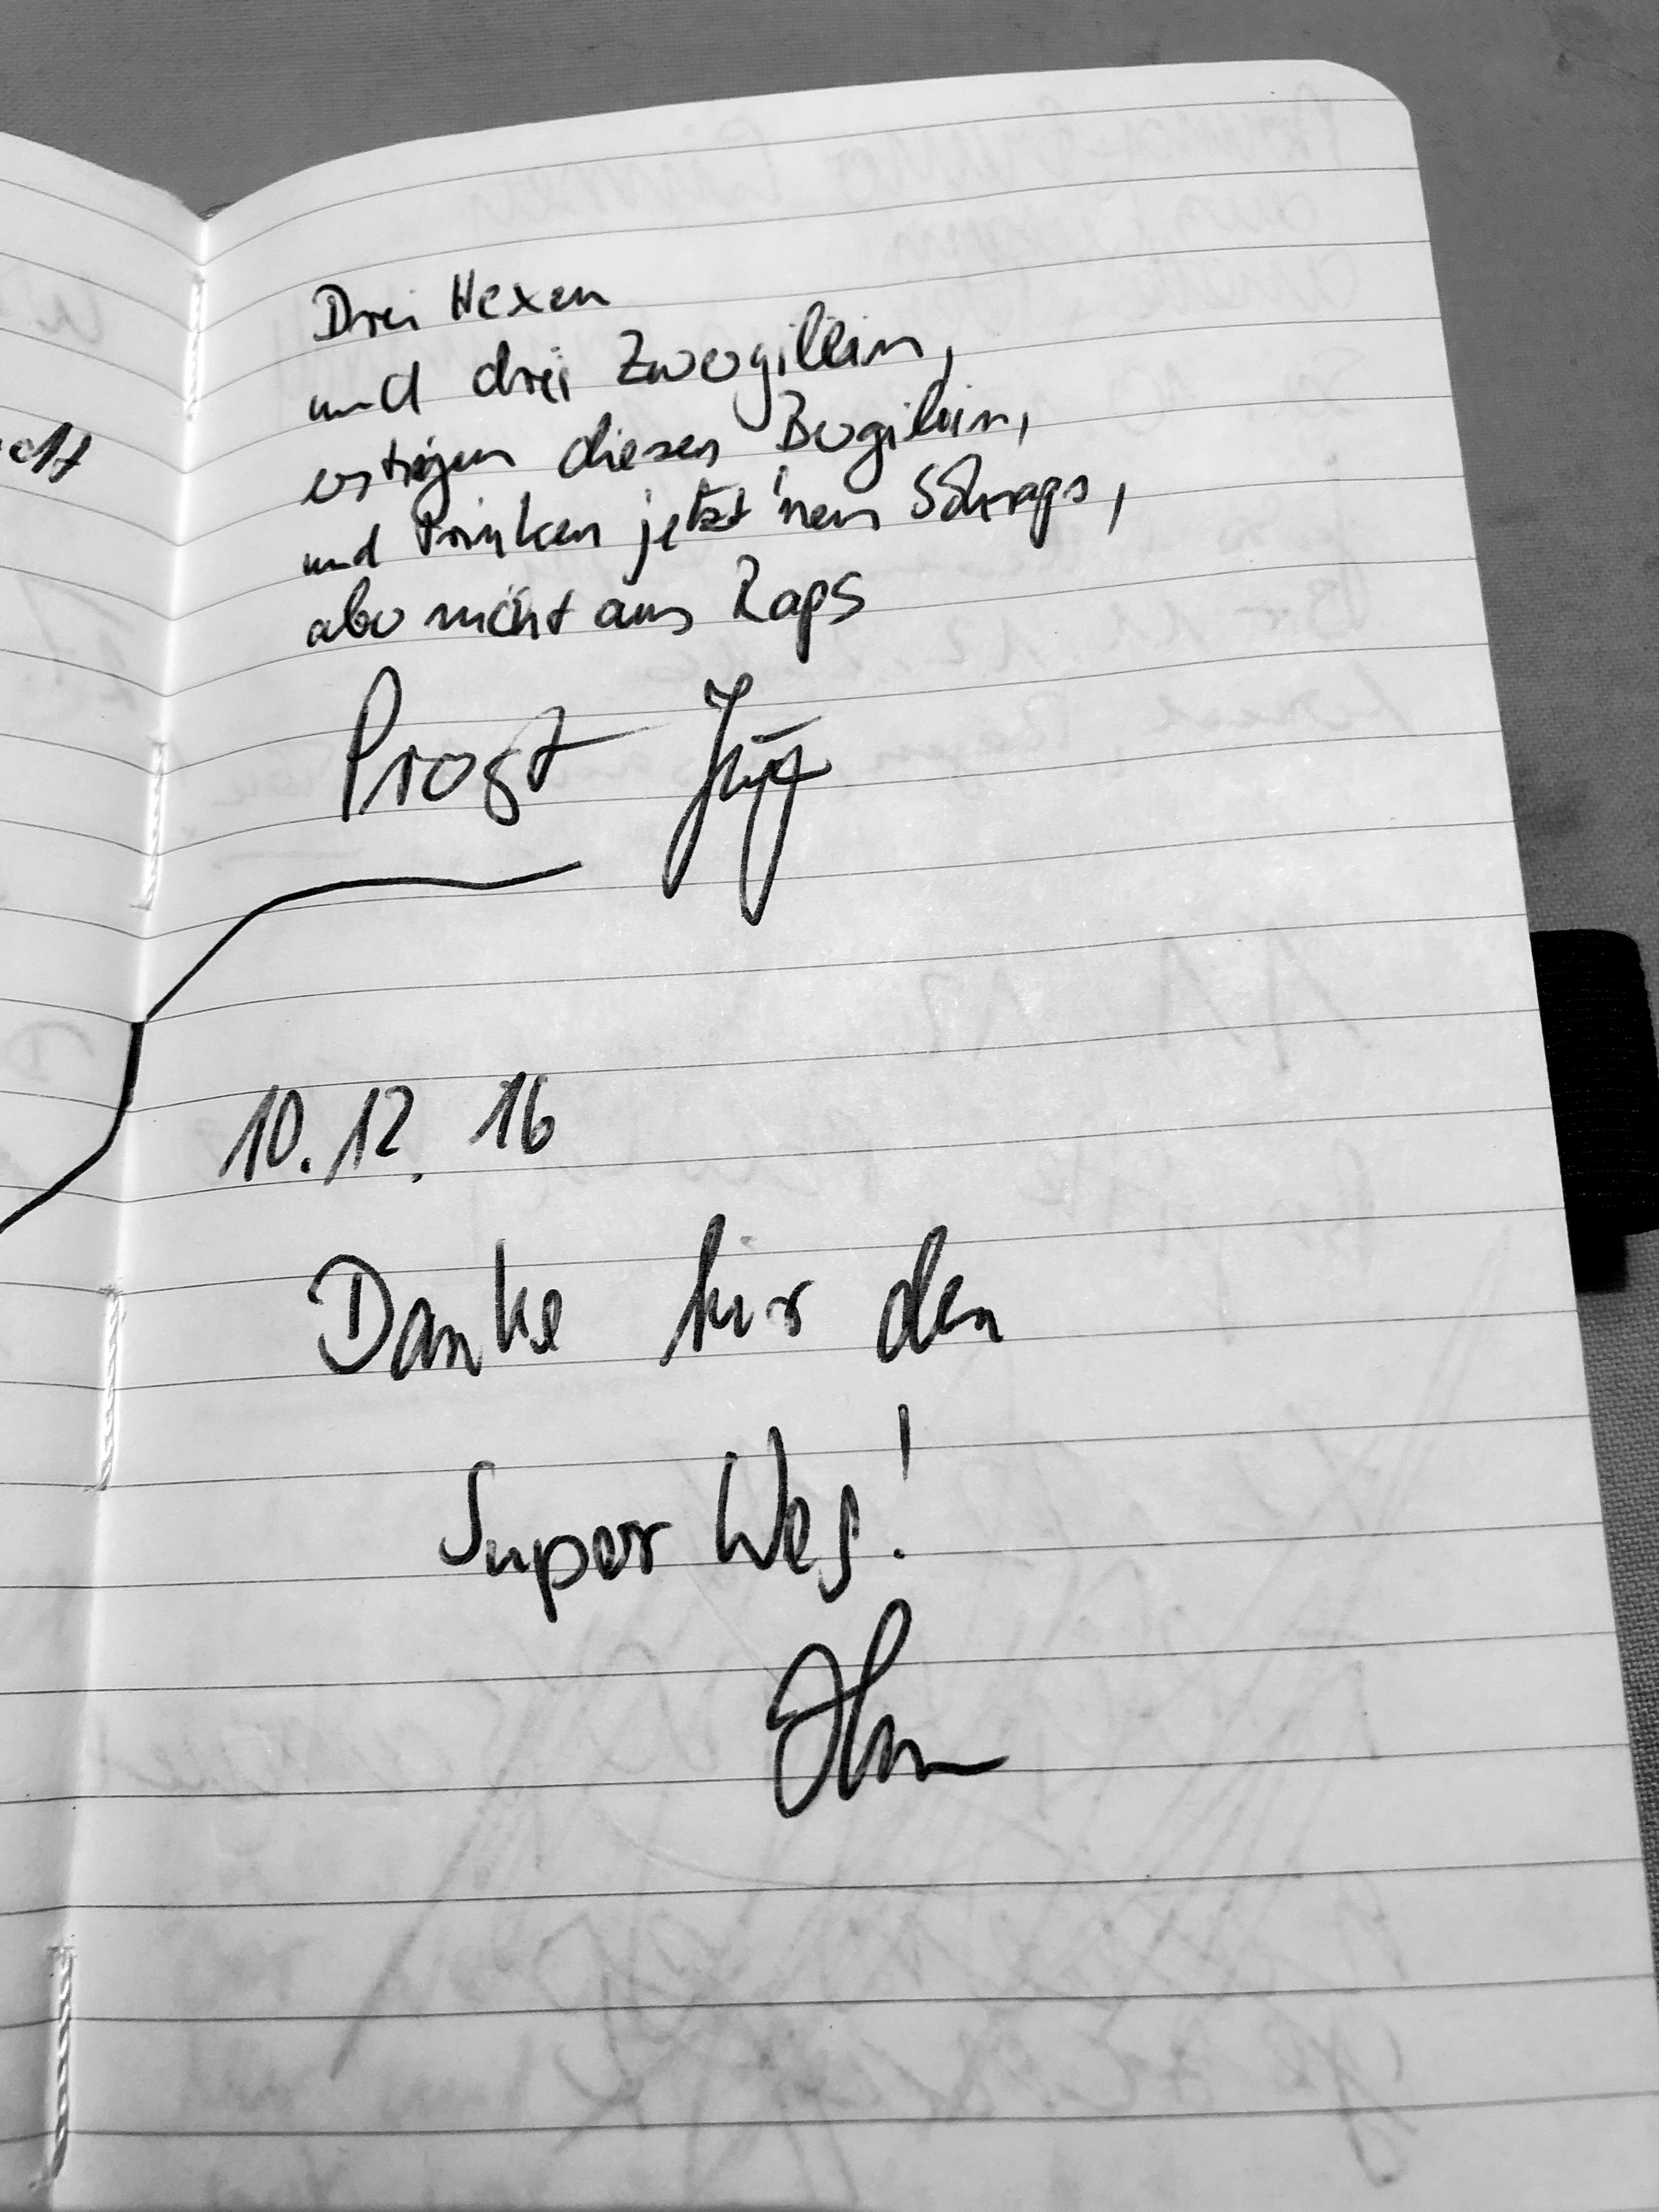 Drei Hexen
und drei Zwergilein,
erstiegen diesen Bergilein,
und Trinken jetzt 'nen Schnaps,
aber nicht aus Raps
Prost
10.12.16
Danke für den
Super Weg!